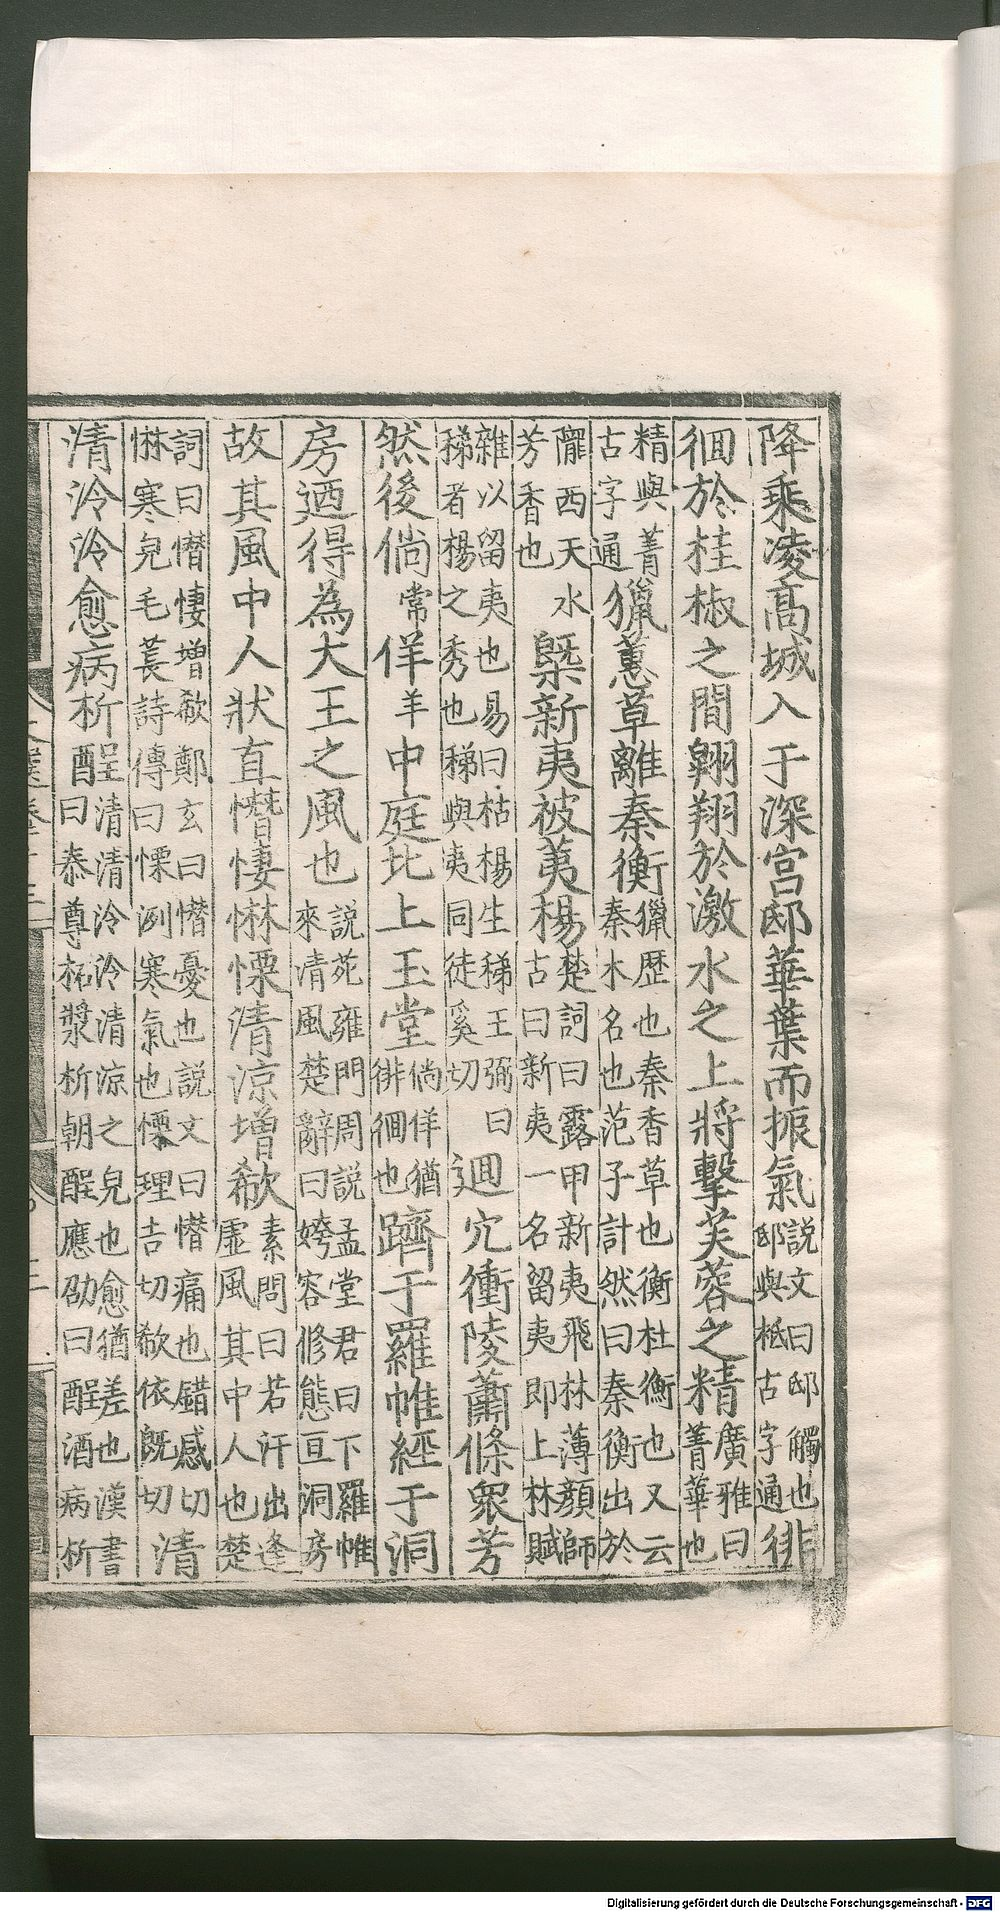 降乘凌髙城入于深宫邸華葉而振氣説文曰邸觸也邸與柢古字通徘
徊於桂椒之間翱翔於激水之上將擊芙蓉之精廣雅曰菁華也
精與菁古字通獵蕙草離秦衡獵歴也秦香草也衡杜衡也又云秦木名也范子計然曰秦衡出於
隴西天水芳香也槩新夷被荑楊楚詞曰露甲新夷飛林薄顔師古曰新夷一名留夷即上林賦
雜以留夷也易曰枯楊生稊王弼曰稊者楊之秀也稊與夷同徒奚切迴穴衝陵蕭條衆芳
然後倘常佯羊中庭北上玉堂倘佯猶徘徊也躋于羅帷經于洞
房迺得為大王之風也説苑雍門周説孟堂君曰下羅帷來清風楚辭曰姱容修態亘洞房
故其風中人狀直憯悽惏慄清涼增欷素問曰若汗出逢虛風其中人也楚
詞曰憯悽增欷鄭玄曰憯憂也説文曰憯痛也錯感切惏寒皃毛萇詩傳曰慄冽寒氣也慄理吉切欷依旣切清
清泠泠愈病析酲清清泠泠清涼之皃也愈猶差也漢書曰泰尊柘漿析朝酲應劭曰酲酒病析
Digitalisierung gefördert durch die Deutsche Forschungsgemeinschaft - DFG